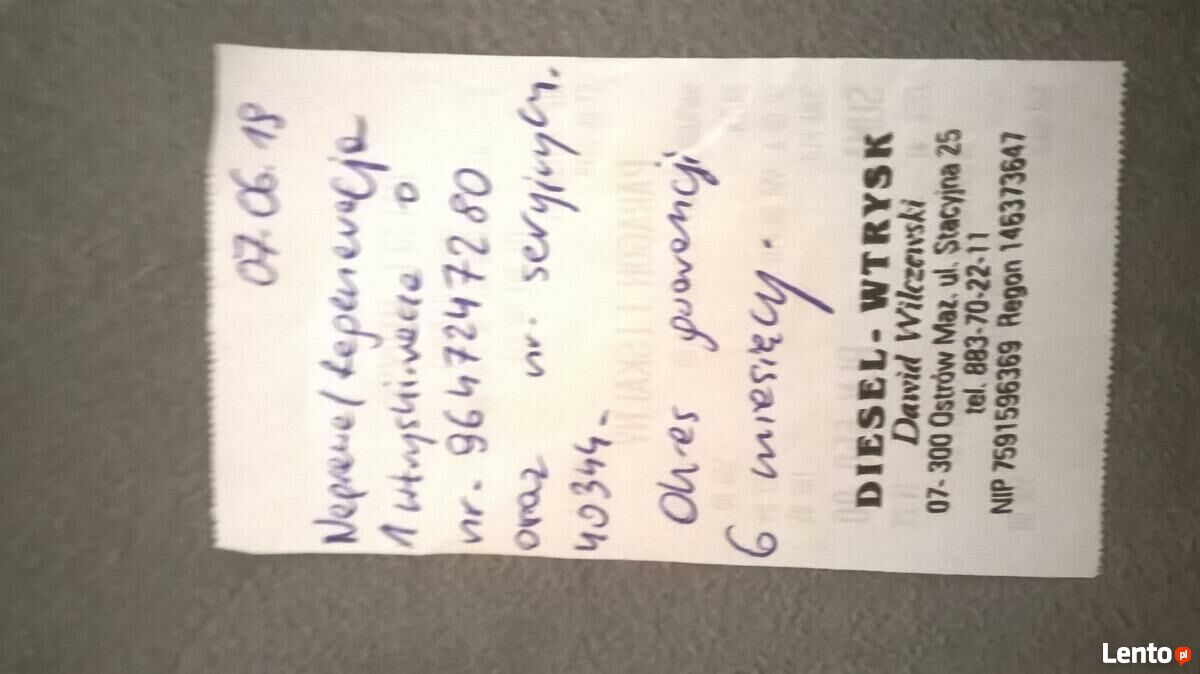 07.06.19
Naprawa/Regeneracja
1 wtryskiwacza o
nr. 9647247280
oraz nr. seryjnym.
40344-
Okres gwarancji
6 miesięcy.
DIESEL - WTRYSK
Dawid Wilczewski
07-300 Ostrów Maz. ul. Stacyjna 25
tel. 883-70-22-11
NIP 7591596369 Regon 146373647
Lento.pl